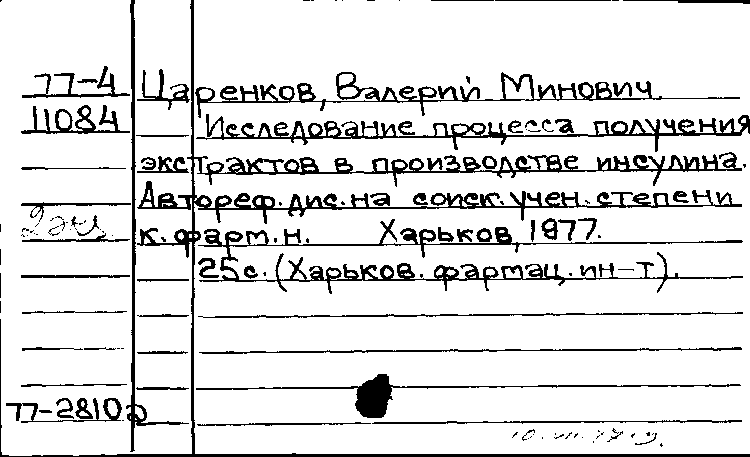 77-4 Царенков, Валерий Минович.
11084 Исследование процесса получения
экстрактов в производстве инсулина.
Автореф. дис. на соиск. учен. степени
2 экз. к. фарм. н. Харьков, 1977.
25 с. (Харьков. фармац. ин-т).
77-2810а